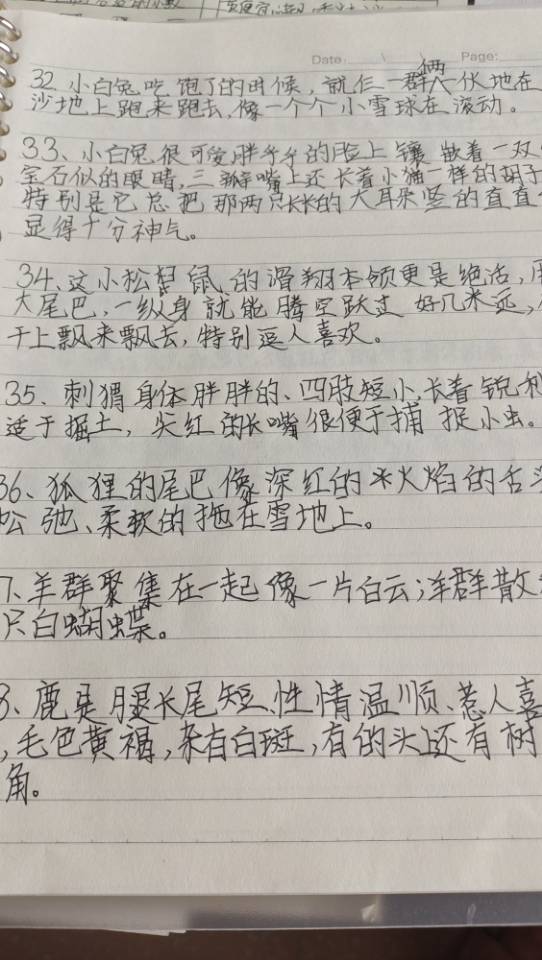 Date: Page:
32. 小白兔吃饱了的时候，就仨一群俩一伙地在
沙地上跑来跑去，像一个个小雪球在滚动。
33、小白兔很可爱胖乎乎的脸上镶嵌着一双
宝石似的眼睛，三瓣嘴上还长着小猫一样的胡子
特别是它总把那两只长长的大耳朵竖的直直
显得十分神气。
34、这小松鼠的滑翔本领更是绝活，用
大尾巴，一纵身就能腾空跃过好几米远，
干上飘来飘去，特别逗人喜欢。
35、刺猬身体胖胖的、四肢短小、长着锐利
适于掘土，尖红的长嘴很便于捕捉小虫。
36、狐狸的尾巴像深红的火焰的舌头
松弛、柔软的拖在雪地上。
7、羊群聚集在一起像一片白云；羊群散
只白蝴蝶。
8、鹿是腿长尾短、性情温顺、惹人喜
，毛色黄褐，杂有白斑，有的头上还有树
角。